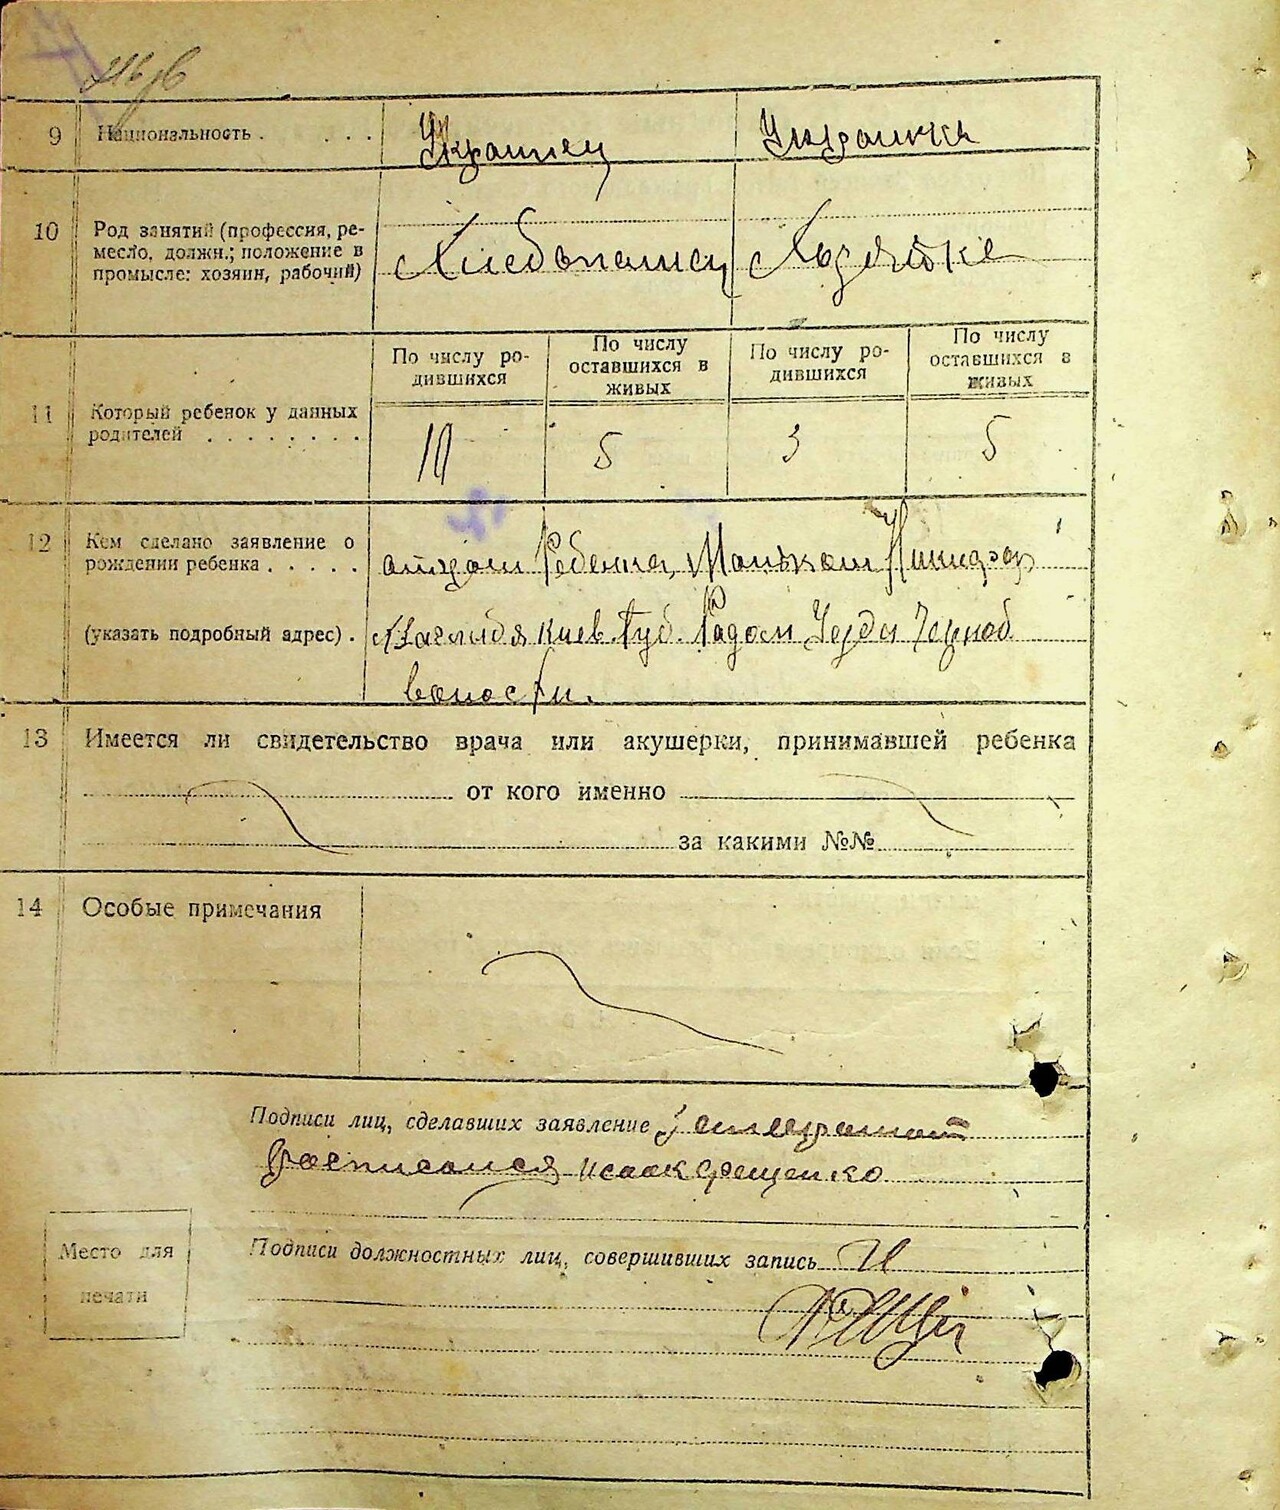 9 Национальность . . . . Украинец Украинка
10 Род занятий (профессия, ре-
месло, должн.; положение в
промысле: хозяин, рабочий)
Хлебопашец Хозяйка
По числу ро-
дившихся
По числу
оставшихся в
живых
По числу ро-
дившихся
По числу
оставшихся в
живых
11 Который ребенок у данных
родителей . . . . . . . .
10 5 3 5
12 Кем сделано заявление о
рождении ребенка . . . . .
Ребенка,
(указать подробный адрес) .
Киев. Губ. Радом Уезда Черноб
волости.
13 Имеется ли свидетельство врача или акушерки, принимавшей ребенка
от кого именно
за какими №№
14 Особые примечания
Подписи лиц, сделавших заявление
Расписался Исаак
Место для
печати
Подписи должностных лиц, совершивших запись